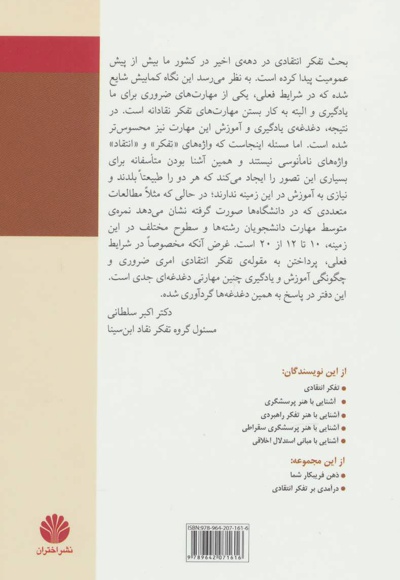 بحث تفکر انتقادی در دهه‌ی اخیر در کشور ما بیش از پیش
عمومیت پیدا کرده است. به نظر می‌رسد این نگاه کمابیش شایع
شده که در شرایط فعلی، یکی از مهارت‌های ضروری برای ما
یادگیری و البته به کار بستن مهارت‌های تفکر نقادانه است. در
نتیجه، دغدغه‌ی یادگیری و آموزش این مهارت نیز محسوس‌تر
شده است. اما مسئله اینجاست که واژه‌های «تفکر» و «انتقاد»
واژه‌های نامأنوسی نیستند و همین آشنا بودن متأسفانه برای
بسیاری این تصور را ایجاد می‌کند که هر دو را طبیعتاً بلدند و
نیازی به آموزش در این زمینه ندارند؛ در حالی که مثلاً مطالعات
متعددی که در دانشگاه‌ها صورت گرفته نشان می‌دهد نمره‌ی
متوسط مهارت دانشجویان رشته‌ها و سطوح مختلف در این
زمینه، ۱۰ تا ۱۲ از ۲۰ است. غرض آنکه مخصوصاً در شرایط
فعلی، پرداختن به مقوله‌ی تفکر انتقادی امری ضروری و
چگونگی آموزش و یادگیری چنین مهارتی دغدغه‌ای جدی است.
این دفتر در پاسخ به همین دغدغه‌ها گردآوری شده.
دکتر اکبر سلطانی
مسئول گروه تفکر نقاد ابن‌سینا
از این نویسندگان:
تفکر انتقادی
آشنایی با هنر پرسشگری
آشنایی با هنر تفکر راهبردی
آشنایی با هنر پرسشگری سقراطی
آشنایی با مبانی استدلال اخلاقی
از این مجموعه:
ذهن فریبکار شما
درآمدی بر تفکر انتقادی
ISBN:978-964-207-161-6
9789642071616
نشر اختران